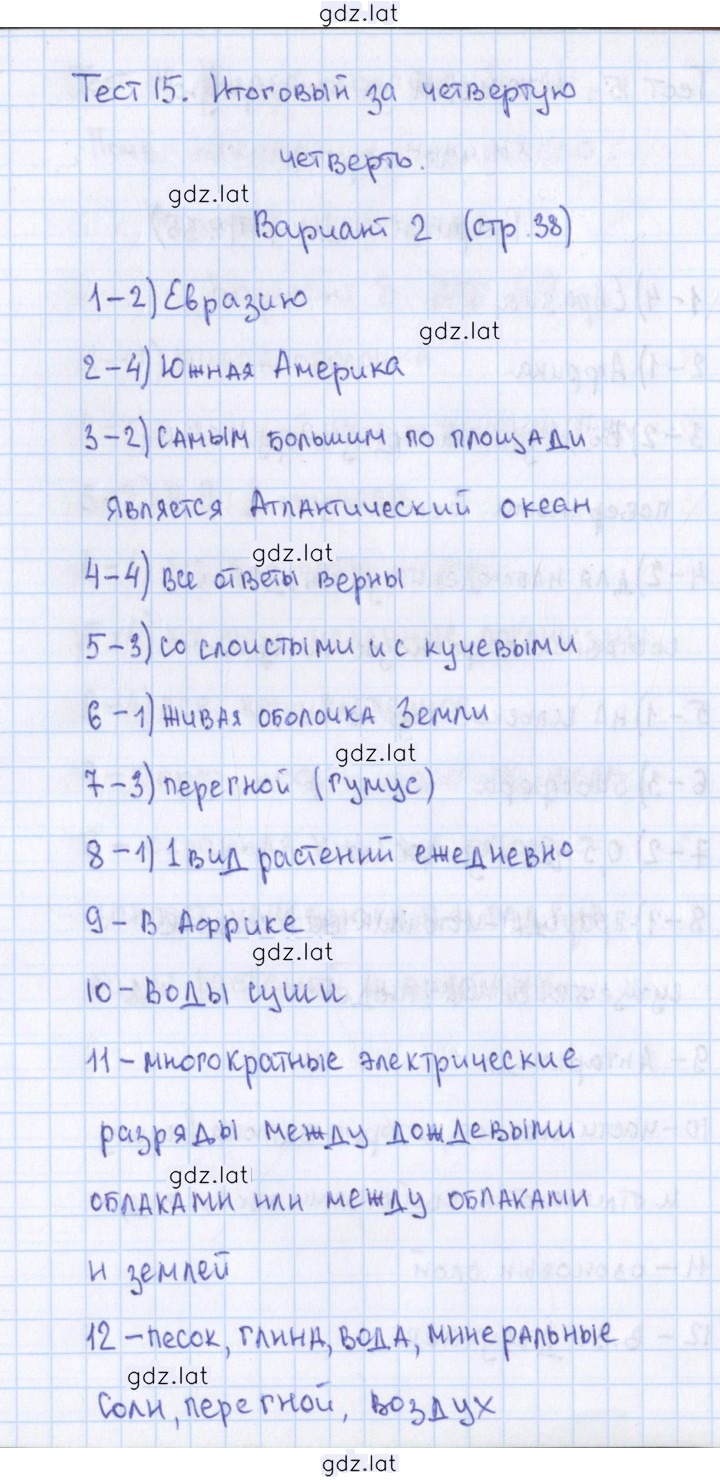 gdz.lat
Тест 15. Итоговый за четвертую
четверть.
gdz.lat
Вариант 2 (стр. 38)
1-2) Евразию
gdz.lat
2-4) Южная Америка
3-2) самым большим по площади
является Атлантический океан
gdz.lat
4-4) все ответы верны
5-3) со слоистыми и с кучевыми
6-1) живая оболочка Земли
gdz.lat
7-3) перегной (гумус)
8-1) 1 вид растений ежедневно
9-в Африке
gdz.lat
10-воды суши
11-многократные электрические
разряды между дождевыми
gdz.lat
облаками или между облаками
и землей
12-песок, глина, вода, минеральные
gdz.lat
соли, перегной, воздух
gdz.lat